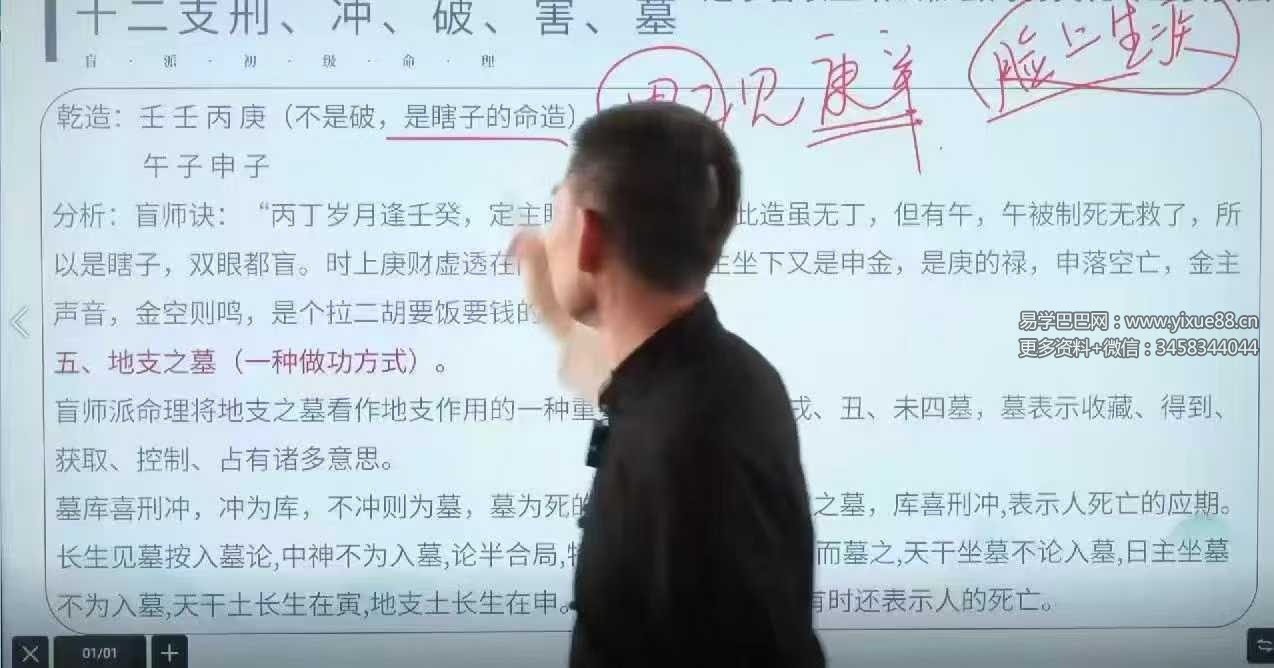 十二支刑、冲、破、害、墓
盲 · 派 · 初 · 级 · 命 · 理
见庚辛
脸上生疾
乾造：壬 壬 丙 庚（不是破，是瞎子的命造）
午 子 申 子
分析：盲师诀：“丙丁岁月逢壬癸，定主 此造虽无丁，但有午，午被制死无救了，所
以是瞎子，双眼都盲。时上庚财虚透在 坐下又是申金，是庚的禄，申落空亡，金主
声音，金空则鸣，是个拉二胡要饭要钱的
易学巴巴网：www.yixue88.cn
更多资料+微信：3458344044
五、地支之墓（一种做功方式）。
盲师派命理将地支之墓看作地支作用的一种重 戌、丑、未四墓，墓表示收藏、得到、
获取、控制、占有诸多意思。
墓库喜刑冲，冲为库，不冲则为墓，墓为死的 之墓，库喜刑冲,表示人死亡的应期。
长生见墓按入墓论,中神不为入墓,论半合局, 而墓之,天干坐墓不论入墓,日主坐墓
不为入墓,天干土长生在寅,地支土长生在申。 有时还表示人的死亡。
01/01